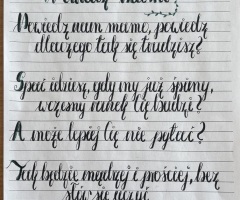 Powiedz nam mamo, powiedz
dlaczego tak się trudzisz?
Spać idziesz, gdy my już śpimy,
wczesny ranek Cię budzi?
A może lepiej Cię nie pytać?
Tak będzie mądrzej i prościej, bez